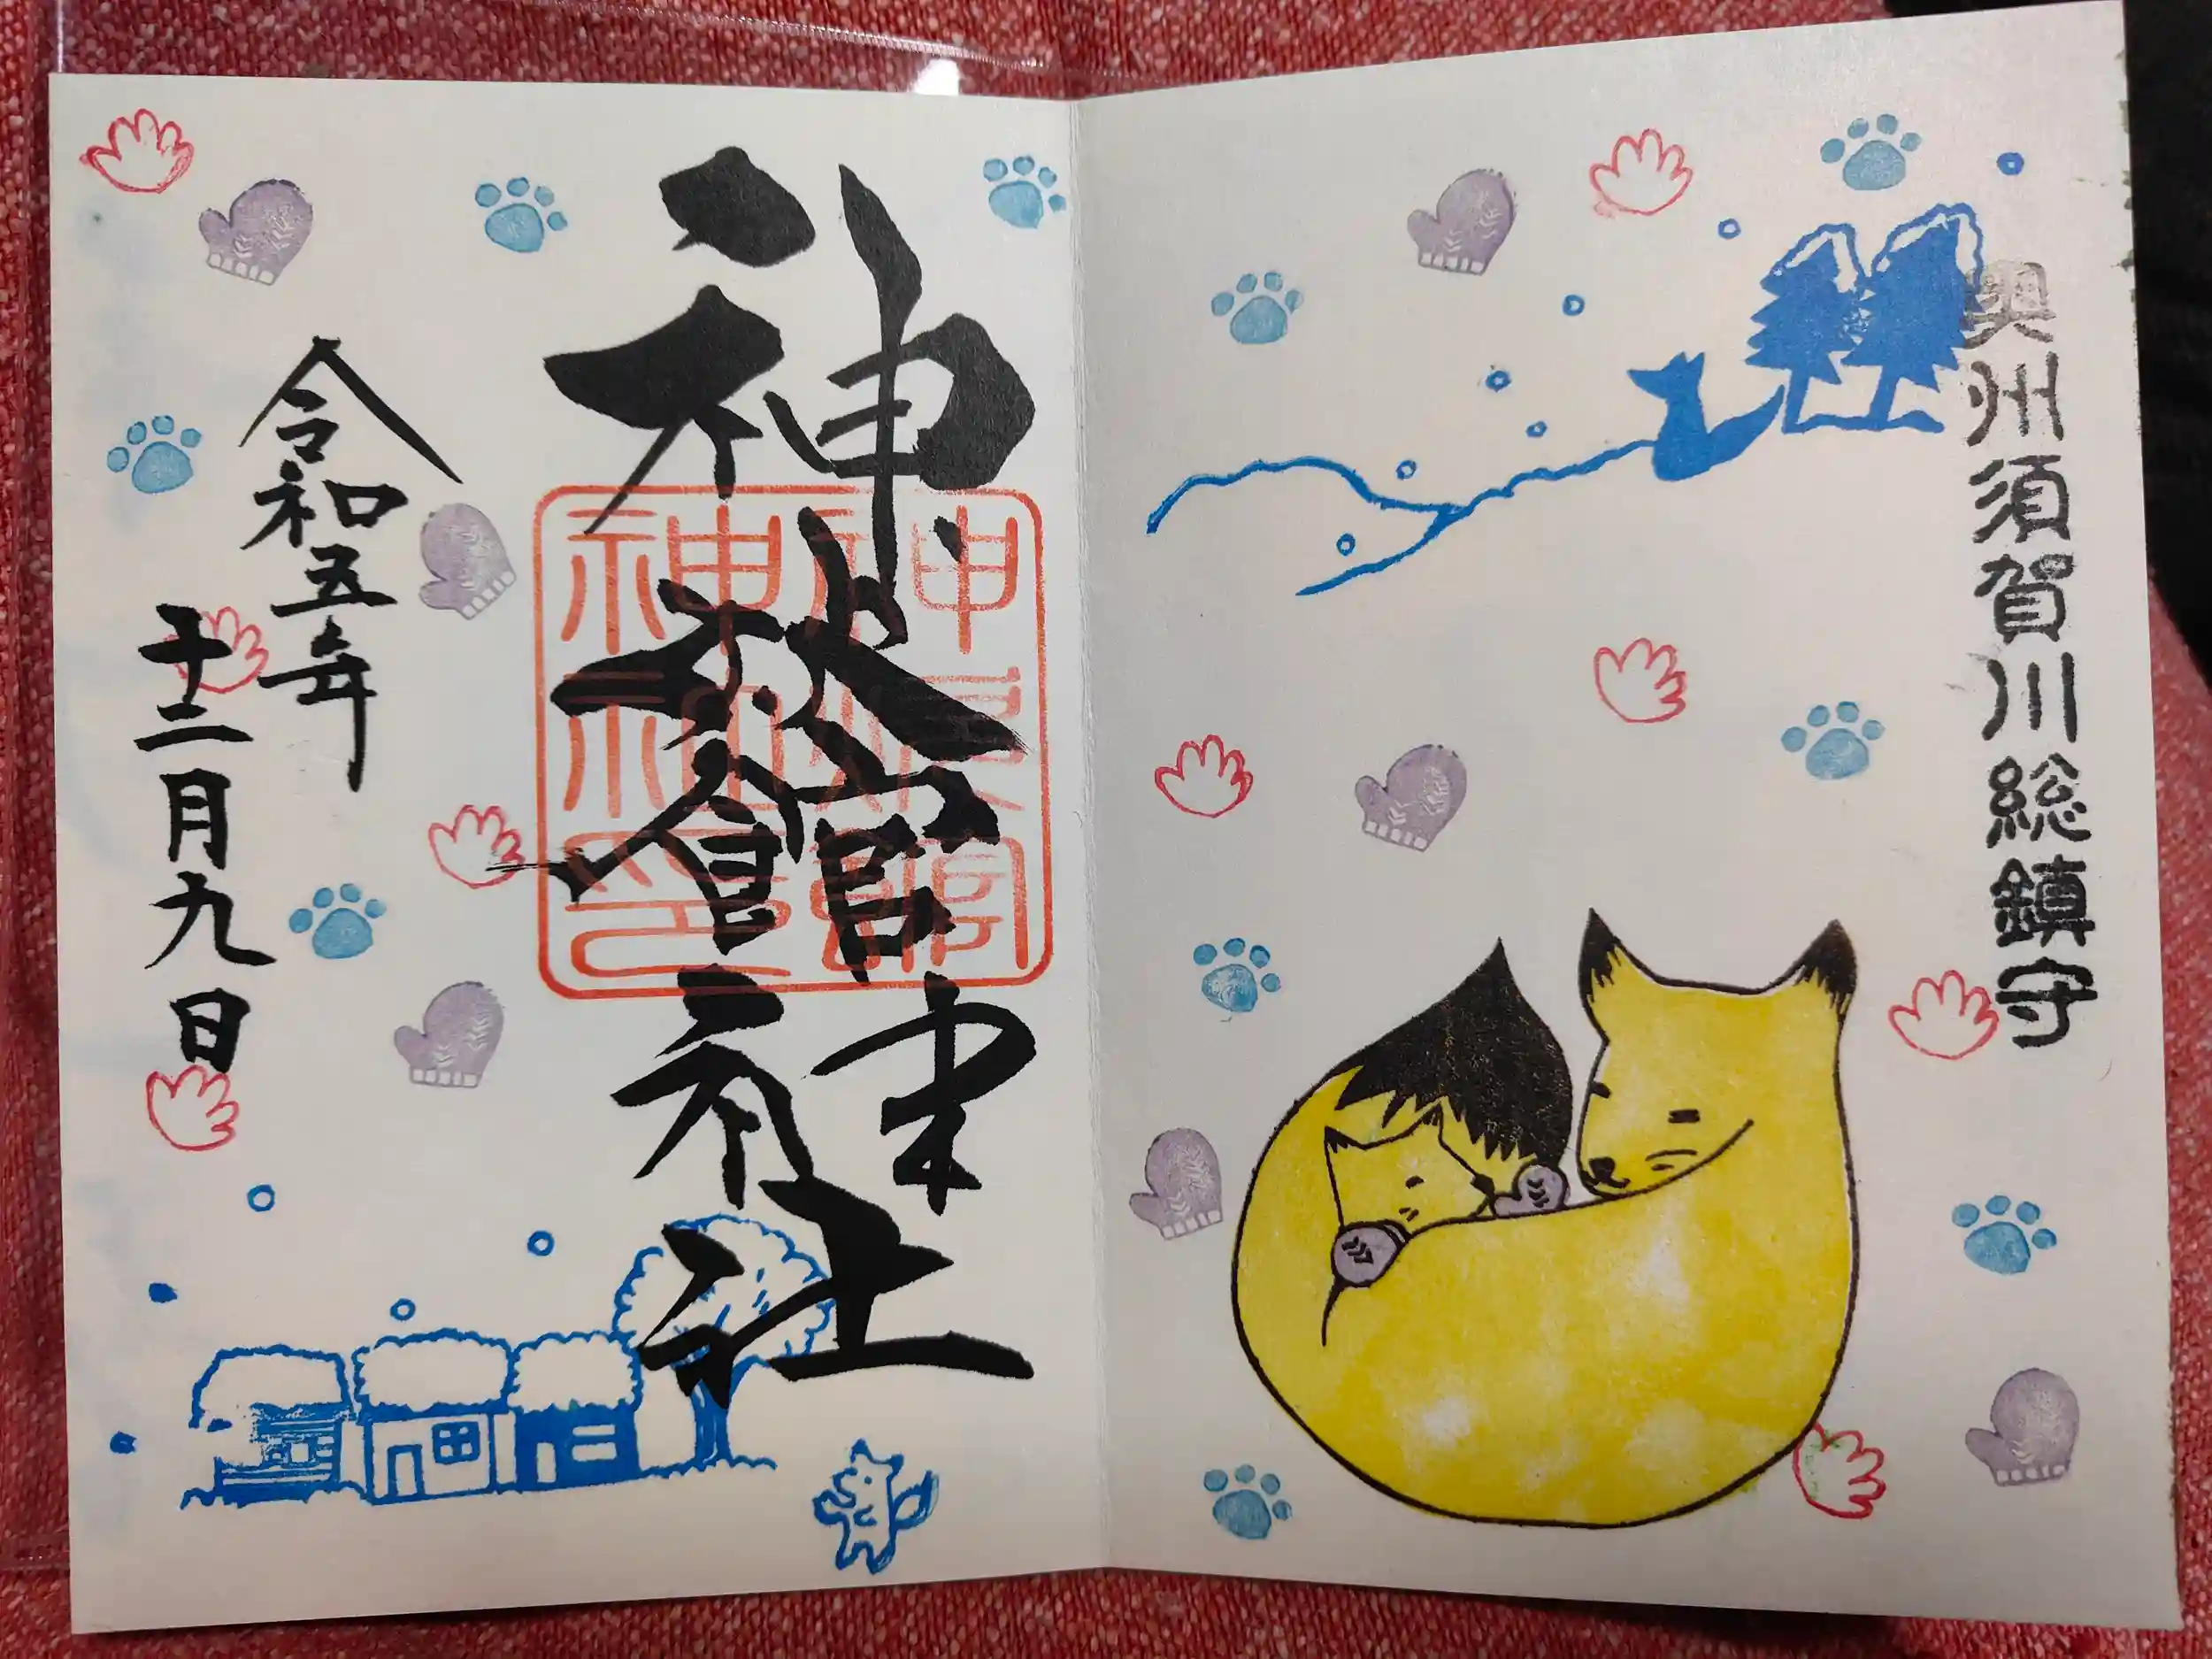 奥州須賀川総鎮守
神炊館神社
令和五年
十二月九日